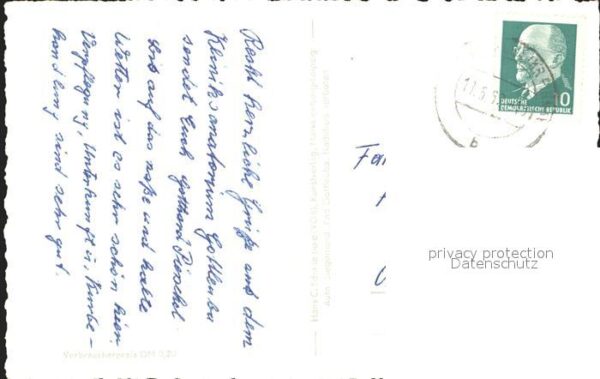 Recht herzliche Grüße aus dem
Kliniksanatorium Gottleuba
sendet Euch Gotthard Pieschel.
Bis auf das naße und kalte
Wetter ist es sehr schön hier.
Verpflegung, Unterkunft u. Kurbe-
handlung sind sehr gut.
Verbraucherpreis DM 0,20
DEUTSCHE
DEMOKRATISCHE REPUBLIK
10
b
privacy protection
Datenschutz